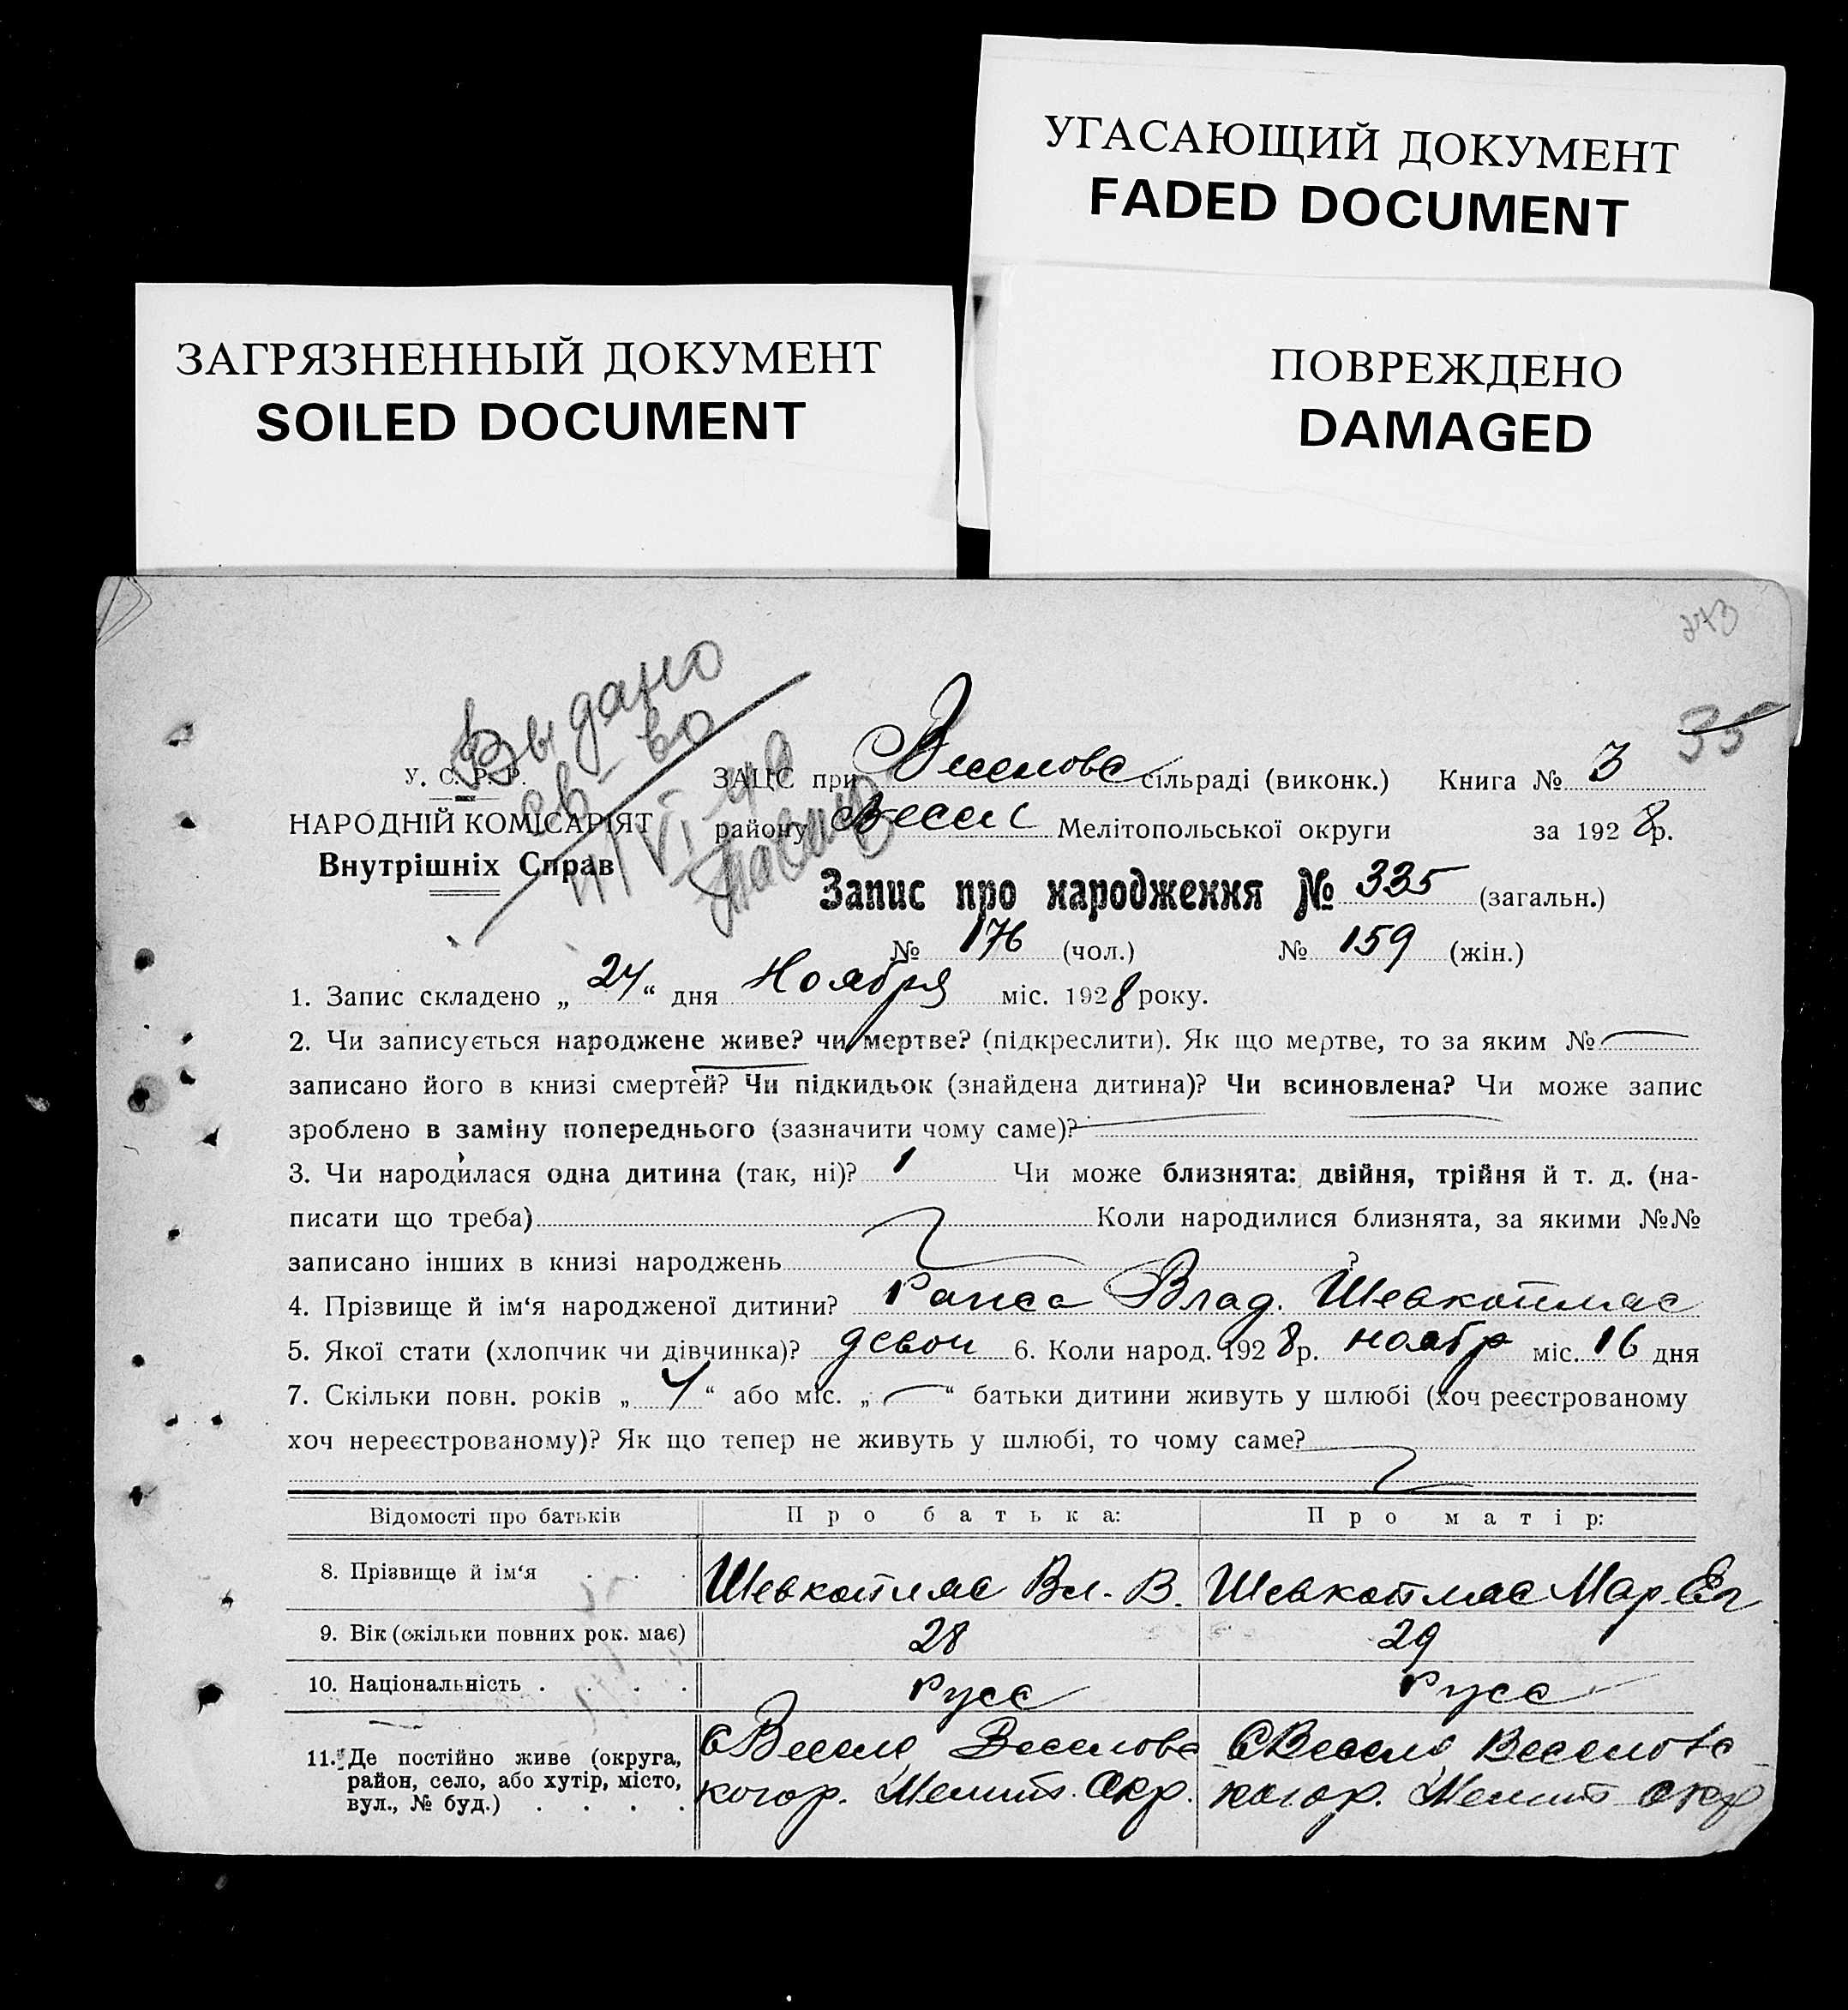 УГАСАЮЩИЙ ДОКУМЕНТ
FADED DOCUMENT
ЗАГРЯЗНЕННЫЙ ДОКУМЕНТ
SOILED DOCUMENT
ПОВРЕЖДЕНО
DAMAGED
35
Выдано
св-во
У. С. Р. Р.
НАРОДНІЙ КОМІСАРІЯТ
Внутрішніх Справ
ЗАЦС при Веселовс сільраді (виконк.) Книга № 3
району Весел Мелітопольської округи за 1928р.
Запис про народження № 335 (загальн.)
№ 176 (чол.) № 159 (жін.)
1. Запис складено „24“ дня Ноября міс. 1928 року.
2. Чи записується народжене живе? чи мертве? (підкреслити). Як що мертве, то за яким №
записано його в книзі смертей? Чи підкидьок (знайдена дитина)? Чи всиновлена? Чи може запис
зроблено в заміну попереднього (зазначити чому саме)?
3. Чи народилася одна дитина (так, ні)? 1 Чи може близнята: двійня, трійня й т. д. (на-
писати що треба) Коли народилися близнята, за якими №№
записано інших в книзі народжень ?
4. Прізвище й ім‘я народженої дитини? Раиса Влад. Шевкопляс
5. Якої стати (хлопчик чи дівчинка)? девоч 6. Коли народ. 1928р. ноябр міс. 16 дня
7. Скільки повн. років „4“ або міс. „—“ батьки дитини живуть у шлюбі (хоч реєстрованому
хоч нереєстрованому)? Як що тепер не живуть у шлюбі, то чому саме?
Відомості про батьків Про батька: Про матір:
8. Прізвище й ім‘я . . . Шевкопляс Вл. В. Шевкопляс Мар. Ег
9. Вік (скільки повних рок. має) 28 29
10. Національність . . . . Русс Русс
11. Де постійно живе (округа, С Весело Веселовс С Весело Веселовс
район, село, або хутір, місто, Мелит. Окр. Мелит окр
вул., № буд.) . . . .